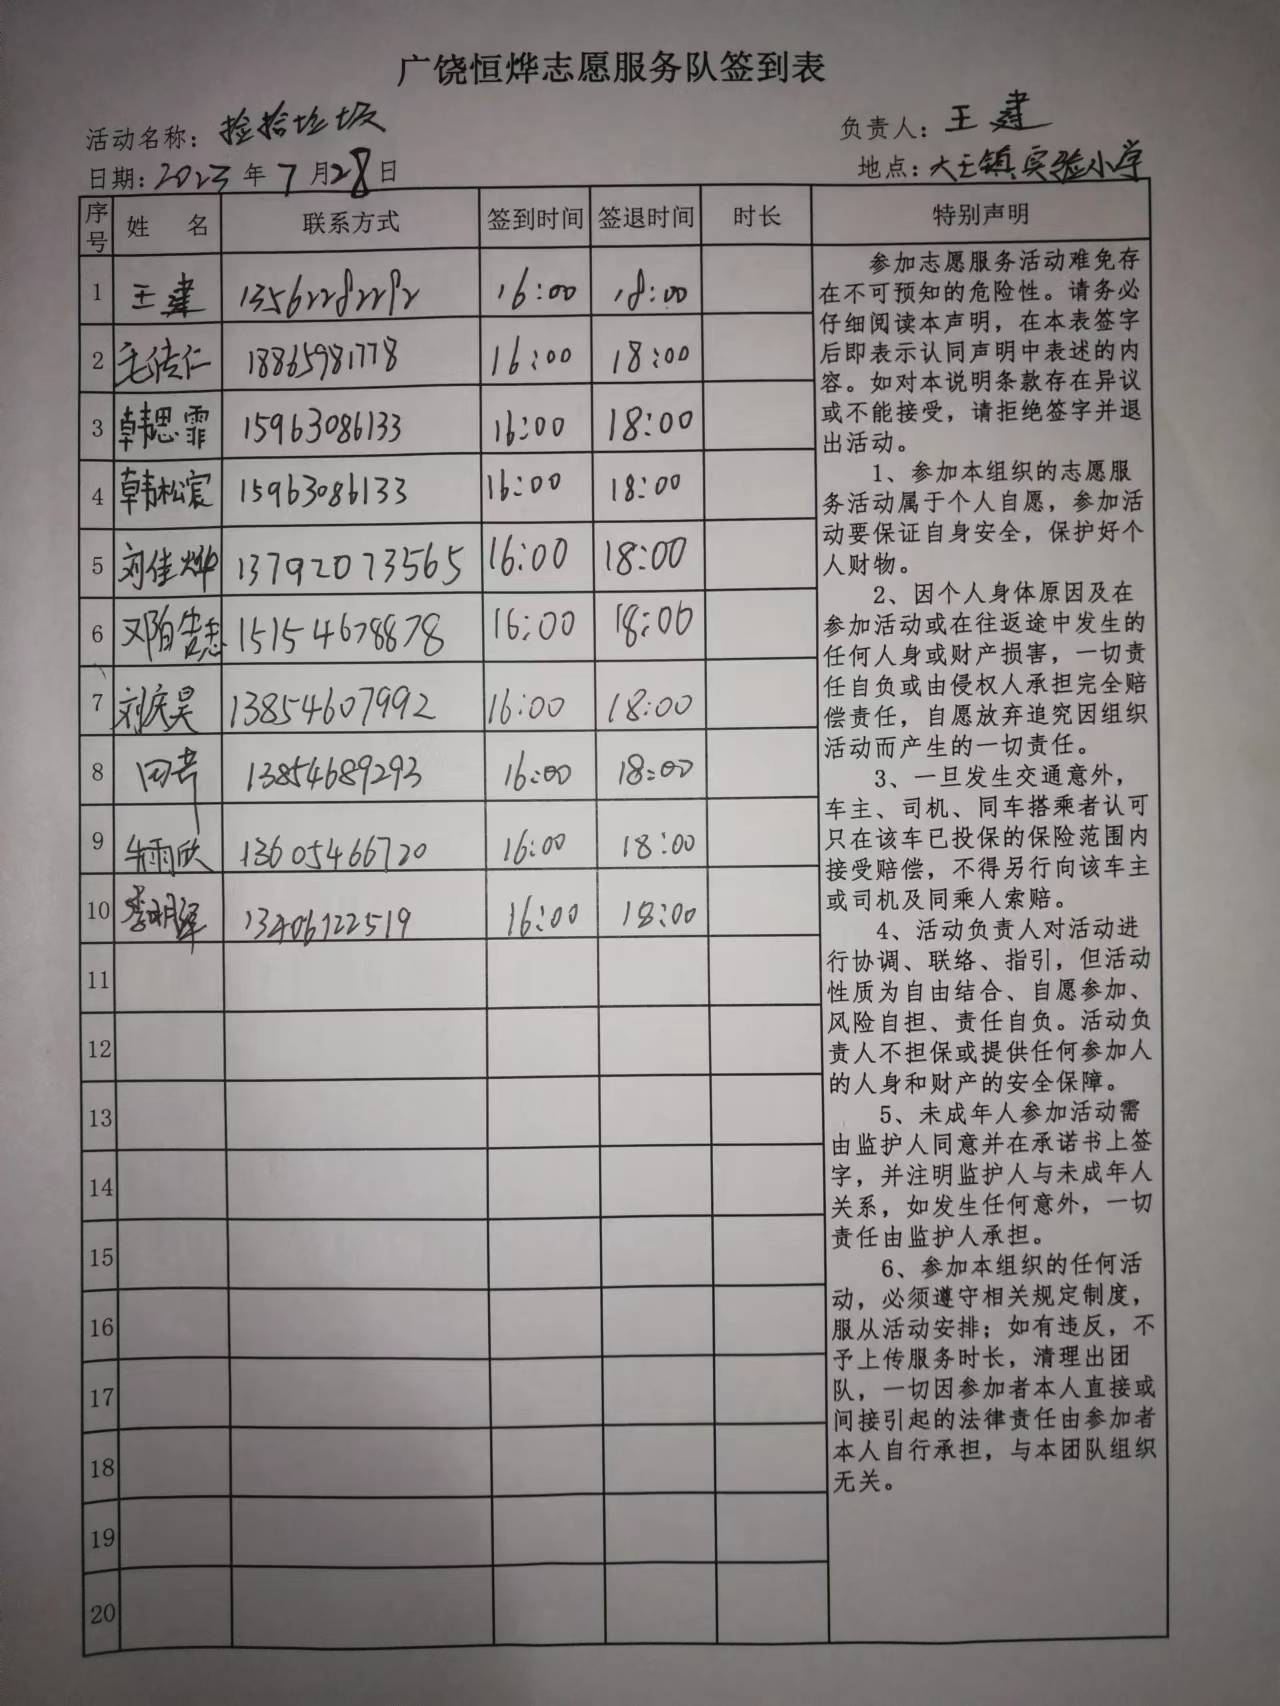 广饶恒烨志愿服务队签到表
活动名称：捡拾垃圾 负责人：王建
日期：2023年7月28日 地点：大王镇实验小学
序号 姓 名 联系方式 签到时间 签退时间 时长 特别声明
1 王建 13562282282 16:00 18:00
2 毛传仁 18865981778 16:00 18:00
3 韩思霏 15963086133 16:00 18:00
4 韩松宸 15963086133 16:00 18:00
5 刘佳烨 13792073565 16:00 18:00
6 15154678878 16:00 18:00
7 刘庆昊 13854607992 16:00 18:00
8 13854689293 16:00 18:00
9 朱雨欣 13605466720 16:00 18:00
10 李明泽 13406122519 16:00 18:00
11
12
13
14
15
16
17
18
19
20
参加志愿服务活动难免存
在不可预知的危险性。请务必
仔细阅读本声明，在本表签字
后即表示认同声明中表述的内
容。如对本说明条款存在异议
或不能接受，请拒绝签字并退
出活动。
1、参加本组织的志愿服
务活动属于个人自愿，参加活
动要保证自身安全，保护好个
人财物。
2、因个人身体原因及在
参加活动或在往返途中发生的
任何人身或财产损害，一切责
任自负或由侵权人承担完全赔
偿责任，自愿放弃追究因组织
活动而产生的一切责任。
3、一旦发生交通意外，
车主、司机、同车搭乘者认可
只在该车已投保的保险范围内
接受赔偿，不得另行向该车主
或司机及同乘人索赔。
4、活动负责人对活动进
行协调、联络、指引，但活动
性质为自由结合、自愿参加、
风险自担、责任自负。活动负
责人不担保或提供任何参加人
的人身和财产的安全保障。
5、未成年人参加活动需
由监护人同意并在承诺书上签
字，并注明监护人与未成年人
关系，如发生任何意外，一切
责任由监护人承担。
6、参加本组织的任何活
动，必须遵守相关规定制度，
服从活动安排；如有违反，不
予上传服务时长，清理出团
队，一切因参加者本人直接或
间接引起的法律责任由参加者
本人自行承担，与本团队组织
无关。